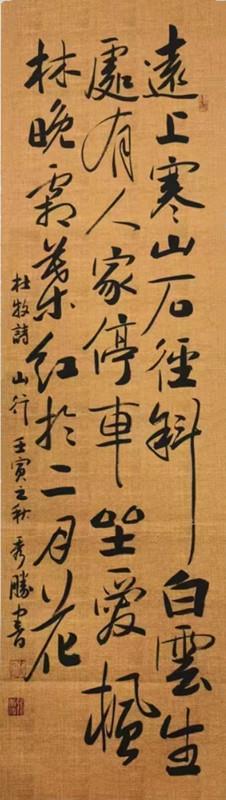 遠上寒山石徑斜白雲生
處有人家停車坐愛楓
林晚霜葉紅於二月花
杜牧詩山行壬寅之秋秀勝書